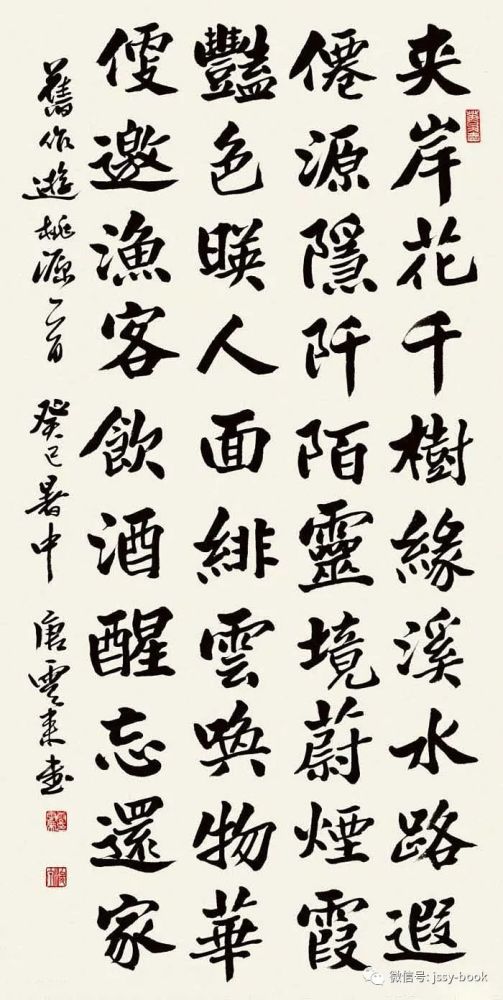 夾岸花千樹緣溪水路遐
僊源隱阡陌靈境蔚煙霞
豔色暎人面緋雲喚物華
傁邀漁客飲酒醒忘還家
舊作遊桃源一首 癸巳暑中 唐雲來書
微信号: jssy-book